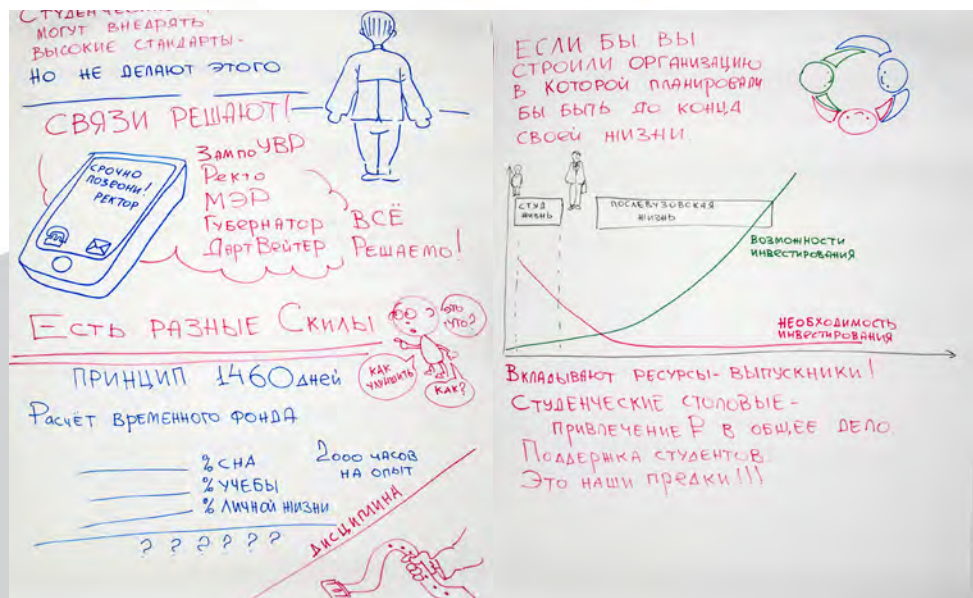 СТУДЕНЧЕСКИЕ
МОГУТ ВНЕДРЯТЬ
ВЫСОКИЕ СТАНДАРТЫ-
НО НЕ ДЕЛАЮТ ЭТОГО
СВЯЗИ РЕШАЮТ!
СРОЧНО
ПОЗВОНИ!
РЕКТОР
ЗАМПОУВР
Ректо
МЭР
Губернатор
ДартВейтер
ВСЁ
Решаемо!
Есть РАЗНЫЕ Скилы
ЭТО
ЧТО?
КАК
УЛУЧШИТЬ
КАК?
ПРИНЦИП 1460 дней
Расчёт временного фонда
% СНА
% УЧЕБЫ
% ЛИЧНОЙ ЖИЗНИ
? ? ? ? ? ?
2000 ЧАСОВ
НА ОПЫТ
ДИСЦИПЛИНА
ЕСЛИ БЫ ВЫ
СТРОИЛИ ОРГАНИЗАЦИЮ
В КОТОРОЙ ПЛАНИРОВАЛИ
БЫ БЫТЬ ДО КОНЦА
СВОЕЙ ЖИЗНИ.
СТУД
ЖИЗНЬ
ПОСЛЕВУЗОВСКАЯ
ЖИЗНЬ
ВОЗМОЖНОСТИ
ИНВЕСТИРОВАНИЯ
НЕОБХОДИМОСТЬ
ИНВЕСТИРОВАНИЯ
Вкладывают ресурсы-выпускники!
Студенческие столовые-
привлечение ₽ в общее дело.
Поддержка студентов
Это наши предки!!!